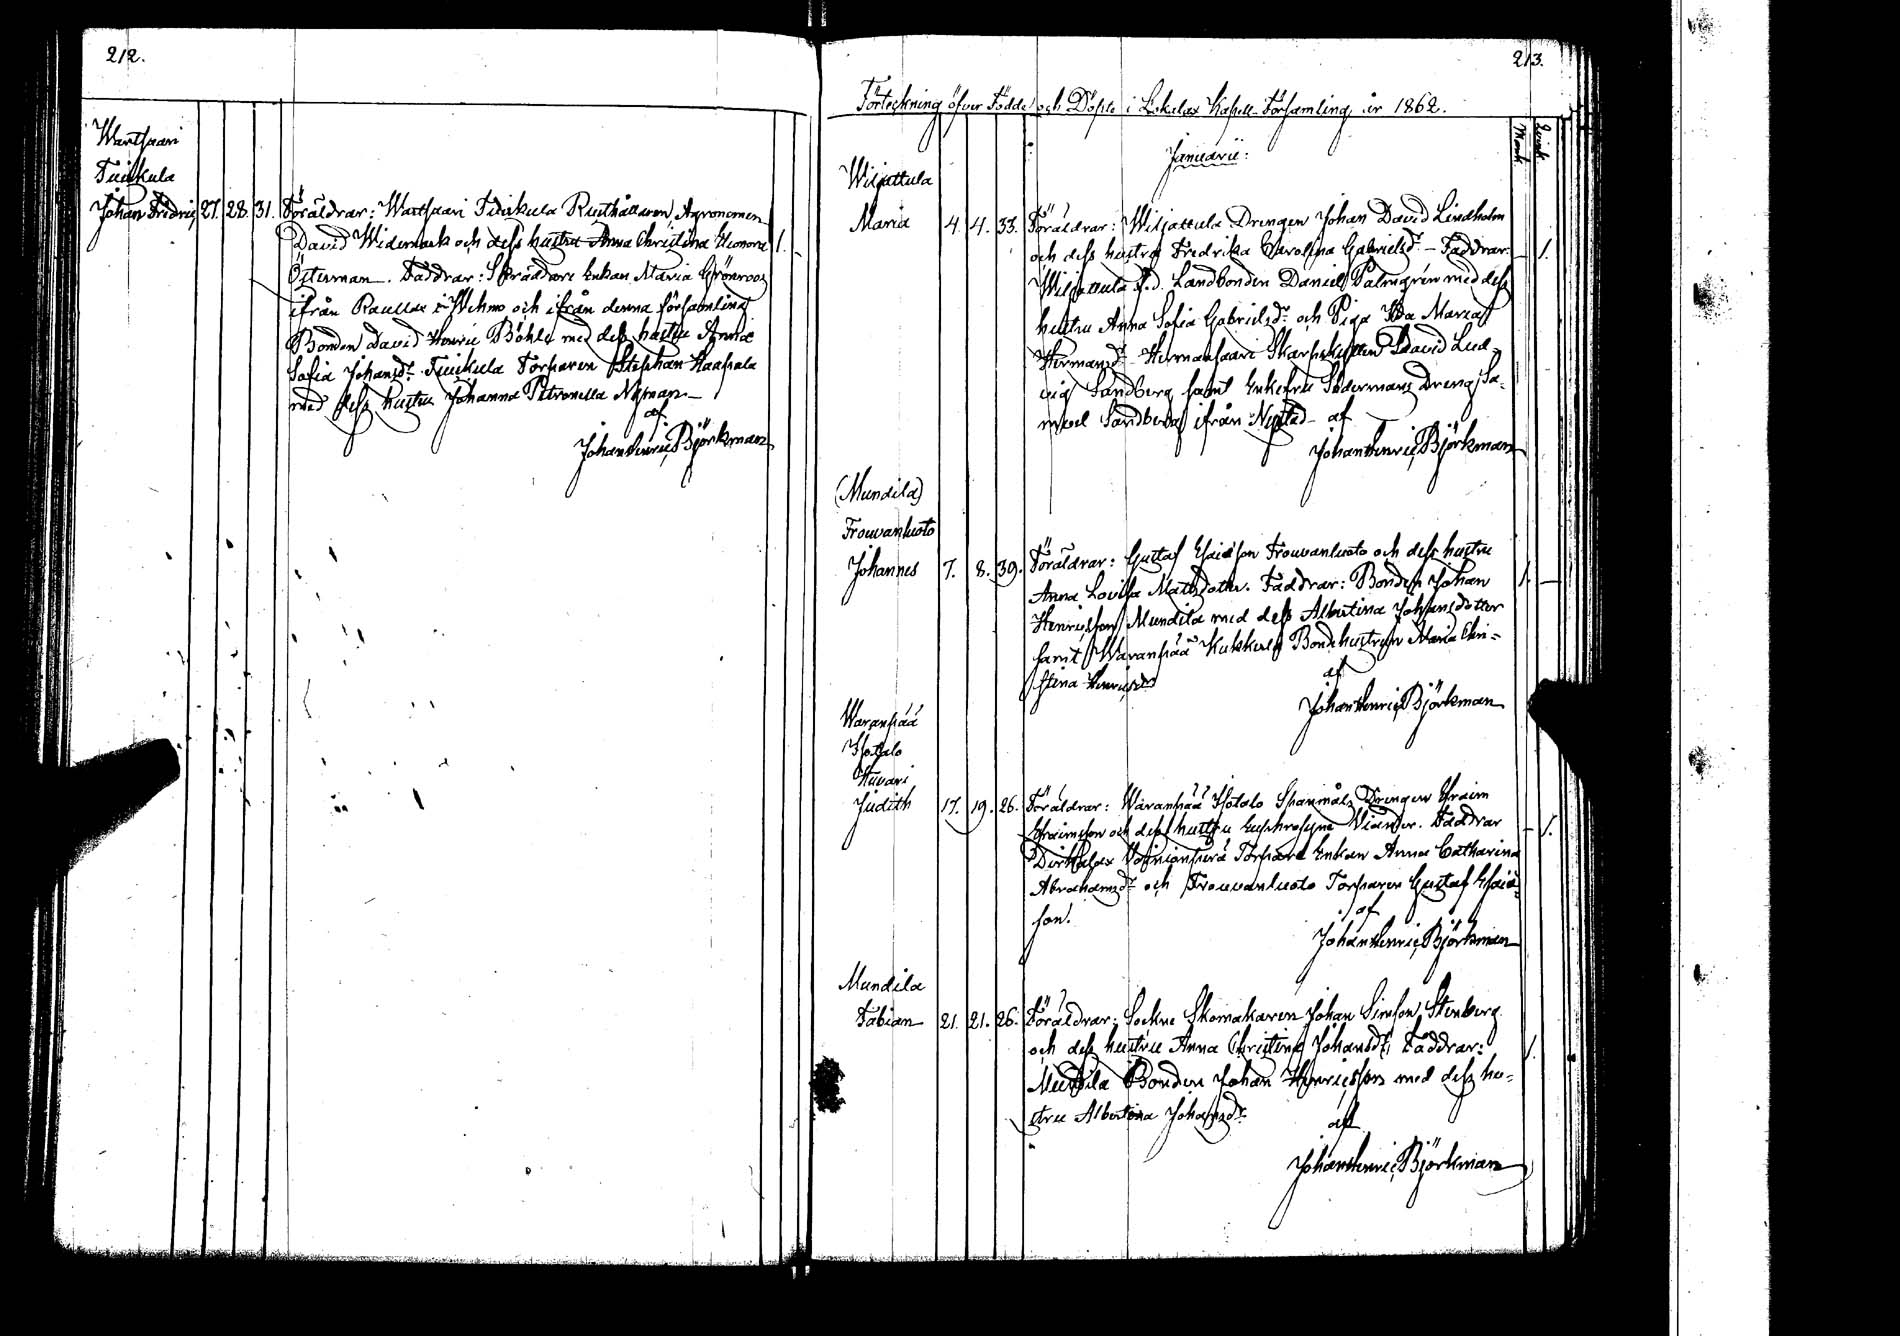 212.
Wartsaari
Tuukula
Johan Fredric 27. 28. 31. Föräldrar: Wartsaari Tuukula Rusthållaren Agronomen
David Widemark och dess hustru Anna Christina Eleonora 1.
Österman. Faddrar: Skräddare Enkan Maria Grönroos
ifrån Raulax i Wehmo och ifrån denna församling
Bonden David Henric Böhle med dess hustru Anna
Sofia Johansdr. Tuukula Torparen Stephan Haapala
med dess hustru Johanna Petronella Nyman
af
Johan Henric Björkman
213.
Förteckning öfver Födde och Döpte i Lokalax Kapell-Församling år 1862.
Mank Qvink
Januarii:
Wiljattula
Maria 4. 4. 33. Föräldrar: Wiljattula Drengen Johan David Lindholm
och dess hustru Fredrika Carolina Gabrielsdr. – Faddrar: – 1.
Wiljattula f.d. Landbonden Daniel Palmgrén med dess
hustru Anna Sofia Gabrielsdr. och Piga Ida Maria
Hermansdr. Hermansaari Skarpskytten David Lud-
vig Sandberg samt Enkefru Södermans Dreng Sa-
muel Sandberg ifrån Nystad – af
Johan Henric Björkman
(Mundila)
Frouvanluoto
Johannes 7. 8. 39. Föräldrar: Gustaf Esaiason Frouvanluoto och dess hustru
Anna Lovisa Matsdotter. Faddrar: Bonden Johan 1. –
Henricsson Mundila med dess Albertina Johansdotter
samt Waranpää Kukkula Bondehustrun Maria Chri-
stina Henricsdr
af
Johan Henric Björkman
Waranpää
Isotalo
Judith 17. 19. 26. Föräldrar: Waranpää Isotalo Spanmåls Drengen Efraim
Efraimson och dess hustru Euphrosyne Viander. Faddrar – 1.
Torpare Enkan Anna Catharina
Abrahamsdr. och Frouvanluoto Torparen Gustaf Esaia-
son.
af
Johan Henric Björkman
Mundila
Fabian 21. 21. 26. Föräldrar: Sockne Skomakaren Johan Simson Stenberg
och dess hustru Anna Christina Johansdr. Faddrar: 1.
Mundila Bonden Johan Henricsson med dess hu-
stru Albertina Johansdr.
af
Johan Henric Björkman